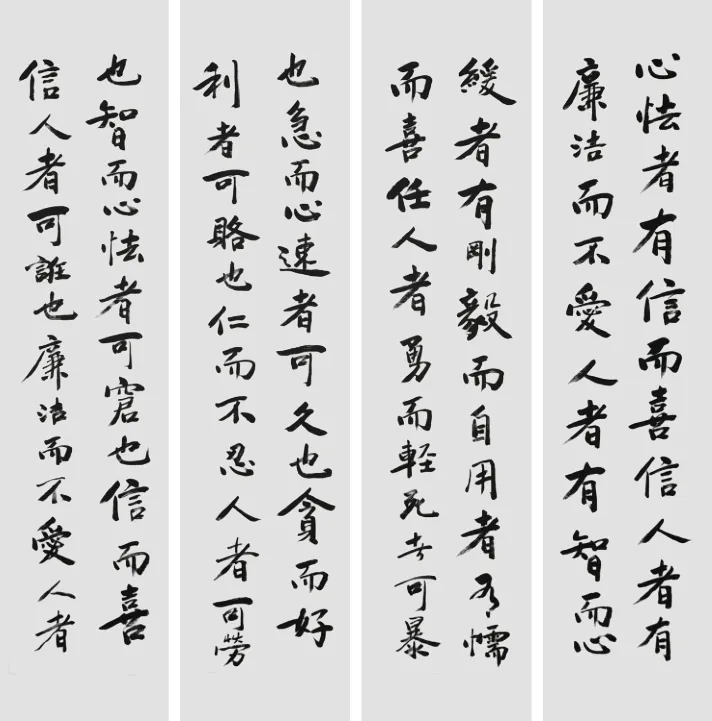 心怯者有信而喜信人者有
廉洁而不愛人者有智而心
緩者有剛毅而自用者有懦
而喜任人者勇而輕死者可暴
也急而心速者可久也貪而好
利者可賂也仁而不忍人者可勞
也智而心怯者可窘也信而喜
信人者可誑也廉洁而不愛人者